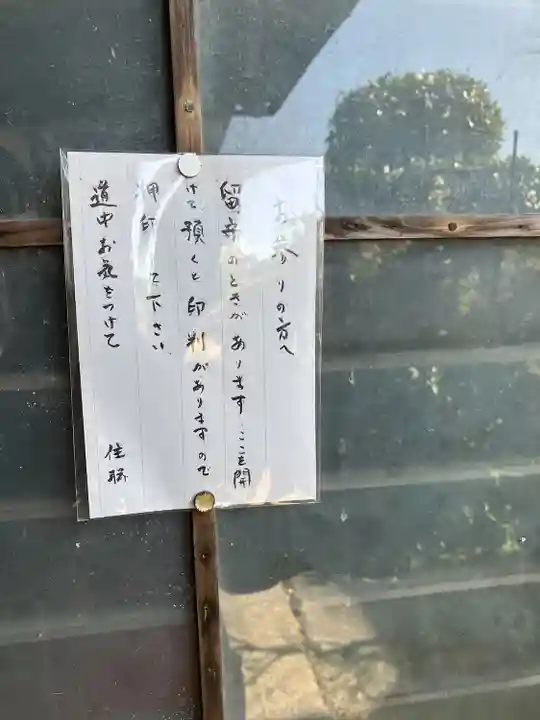 お参りの方へ
留守のときがあります、ここを開
けて頂くと印判がありますので
押印して下さい、
道中お気をつけて
住職